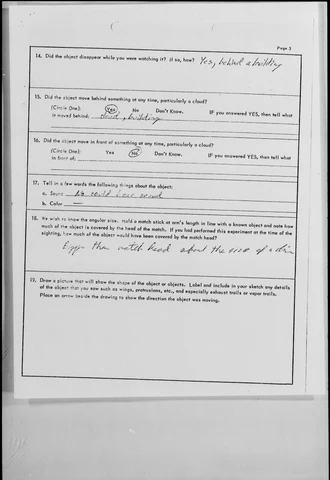 Page 3
14. Did the object disappear while you were watching it? If so, how? Yes, behind a building
15. Did the object move behind something at any time, particularly a cloud?
(Circle One): Yes No Don't Know. IF you answered YES, then tell what
it moved behind: building
16. Did the object move in front of something at any time, particularly a cloud?
(Circle One): Yes No Don't Know. IF you answered YES, then tell what
in front of:
17. Tell in a few words the following things about the object:
a. Sound
b. Color —
18. We wish to know the angular size. Hold a match stick at arm's length in line with a known object and note how
much of the object is covered by the head of the match. If you had performed this experiment at the time of the
sighting, how much of the object would have been covered by the match head?
than match head about the size of a
19. Draw a picture that will show the shape of the object or objects. Label and include in your sketch any details
of the object that you saw such as wings, protrusions, etc., and especially exhaust trails or vapor trails.
Place an arrow beside the drawing to show the direction the object was moving.